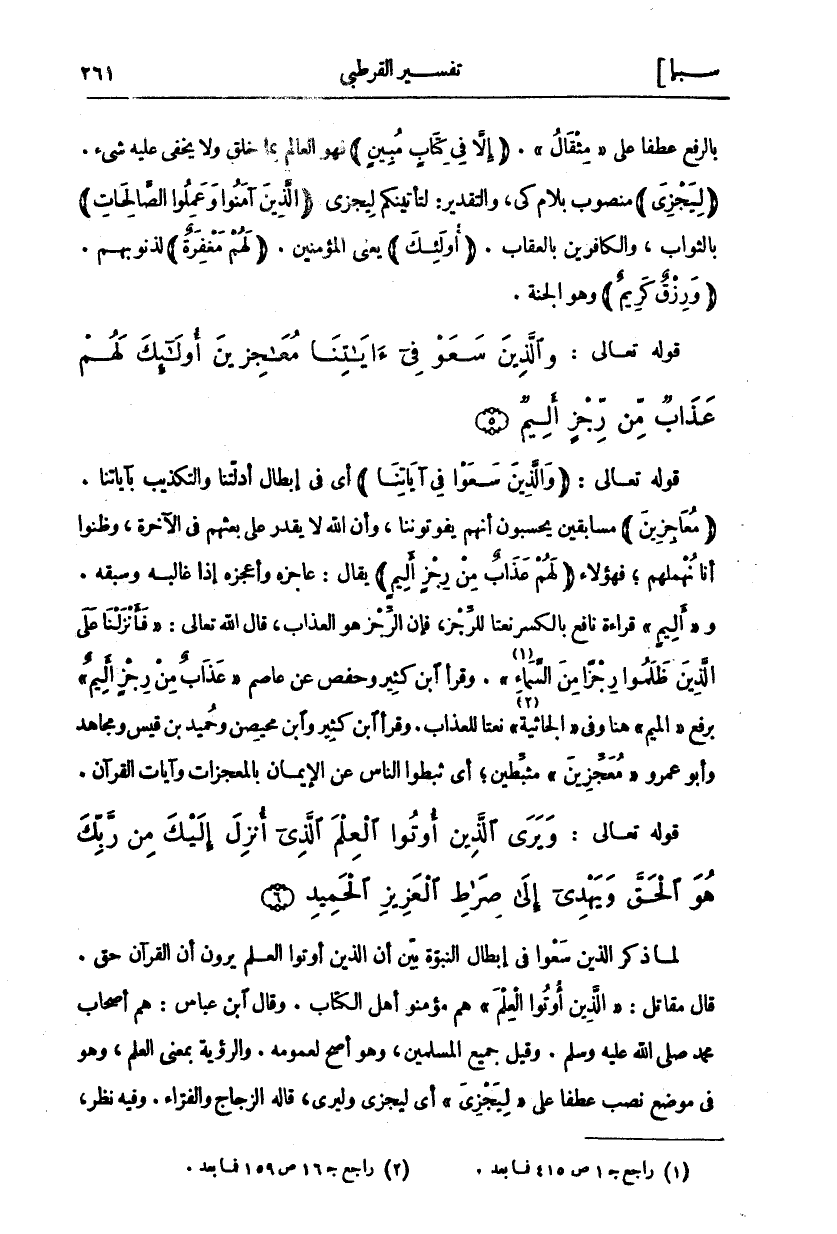 سبإ] تفسير القرطبي ٢٦١
بالرفع عطفا على « مِثْقَالُ » . ﴿ إِلَّا فِي كِتَابٍ مُبِينٍ ﴾ فهو العالم بما خلق ولا يخفى عليه شىء .
﴿ لِيَجْزِىَ ﴾ منصوب بلام كى، والتقدير: لتأتينكم ليجزى ﴿ الَّذِينَ آمَنُوا وَعَمِلُوا الصَّالِحَاتِ ﴾
بالثواب ، والكافرين بالعقاب . ﴿ أُولَئِكَ ﴾ يعنى المؤمنين . ﴿ لَهُمْ مَغْفِرَةٌ ﴾ لذنوبهم .
﴿ وَرِزْقٌ كَرِيمٌ ﴾ وهو الجنة .
قوله تعالى : وَٱلَّذِينَ سَعَوْ فِىٓ ءَايَـٰتِنَا مُعَـٰجِزِينَ أُولَـٰٓئِكَ لَهُمْ
عَذَابٌ مِّن رِّجْزٍ أَلِيمٌ ۝٥
قوله تعالى : ﴿ وَالَّذِينَ سَعَوْا فِي آيَاتِنَا ﴾ أى فى إبطال أدلّتنا والتكذيب بآياتنا .
﴿ مُعَاجِزِينَ ﴾ مسابقين يحسبون أنهم يفوتوننا ، وأن الله لا يقدر على بعثهم فى الآخرة ، وظنوا
أنا نُهملهم ؛ فهؤلاء ﴿ لَهُمْ عَذَابٌ مِنْ رِجْزٍ أَلِيمٍ ﴾ يقال : عاجزه وأعجزه إذا غالبه وسبقه .
و « أَلِيمٍ » قراءة نافع بالكسر نعتا للرِّجز، فإن الرِّجْز هو العذاب، قال الله تعالى : « فَأَنْزَلْنَا عَلَى
الَّذِينَ ظَلَمُوا رِجْزًا مِنَ السَّمَاءِ (١) » . وقرأ ٱبن كثير وحفص عن عاصم « عَذَابٌ مِنْ رِجْزٍ أَلِيمٌ »
برفع « الميم » هنا وفى « الجاثية (٢) » نعتا للعذاب. وقرأ ٱبن كثير وٱبن محيصن وحُميد بن قيس ومجاهد
وأبو عمرو « مُعَجِّزِينَ » مثبِّطين؛ أى ثبطوا الناس عن الإيمان بالمعجزات وآيات القرآن .
قوله تعالى : وَيَرَى ٱلَّذِينَ أُوتُوا ٱلْعِلْمَ ٱلَّذِىٓ أُنزِلَ إِلَيْكَ مِن رَّبِّكَ
هُوَ ٱلْحَقَّ وَيَهْدِىٓ إِلَىٰ صِرَٰطِ ٱلْعَزِيزِ ٱلْحَمِيدِ ۝٦
لما ذكر الذين سَعَوا فى إبطال النبوّة بيّن أن الذين أوتوا العلم يرون أن القرآن حق .
قال مقاتل : « الَّذِينَ أُوتُوا الْعِلْمَ » هم مؤمنو أهل الكتاب . وقال ٱبن عباس : هم أصحاب
محمد صلى الله عليه وسلم . وقيل جميع المسلمين، وهو أصح لعمومه . والرؤية بمعنى العلم ، وهو
فى موضع نصب عطفا على « لِيَجْزِىَ » أى ليجزى وليرى، قاله الزجاج والفرّاء . وفيه نظر،
(١) راجع جـ ١ ص ٤١٥ فما بعد . (٢) راجع جـ ١٦ ص ١٥٩ فما بعد .